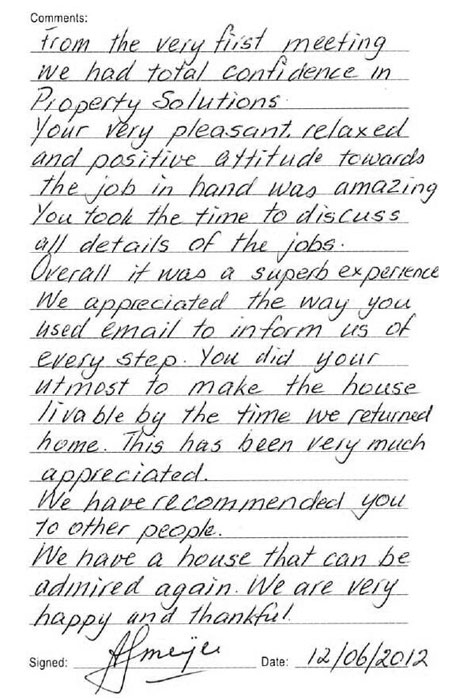 Comments:
From the very first meeting
we had total confidence in
Property Solutions.
Your very pleasant, relaxed
and positive attitude towards
the job in hand was amazing
You took the time to discuss
all details of the jobs.
Overall it was a superb experience
We appreciated the way you
used email to inform us of
every step. You did your
utmost to make the house
livable by the time we returned
home. This has been very much
appreciated.
We have recommended you
to other people.
We have a house that can be
admired again. We are very
happy and thankful.
Signed: Date: 12/06/2012